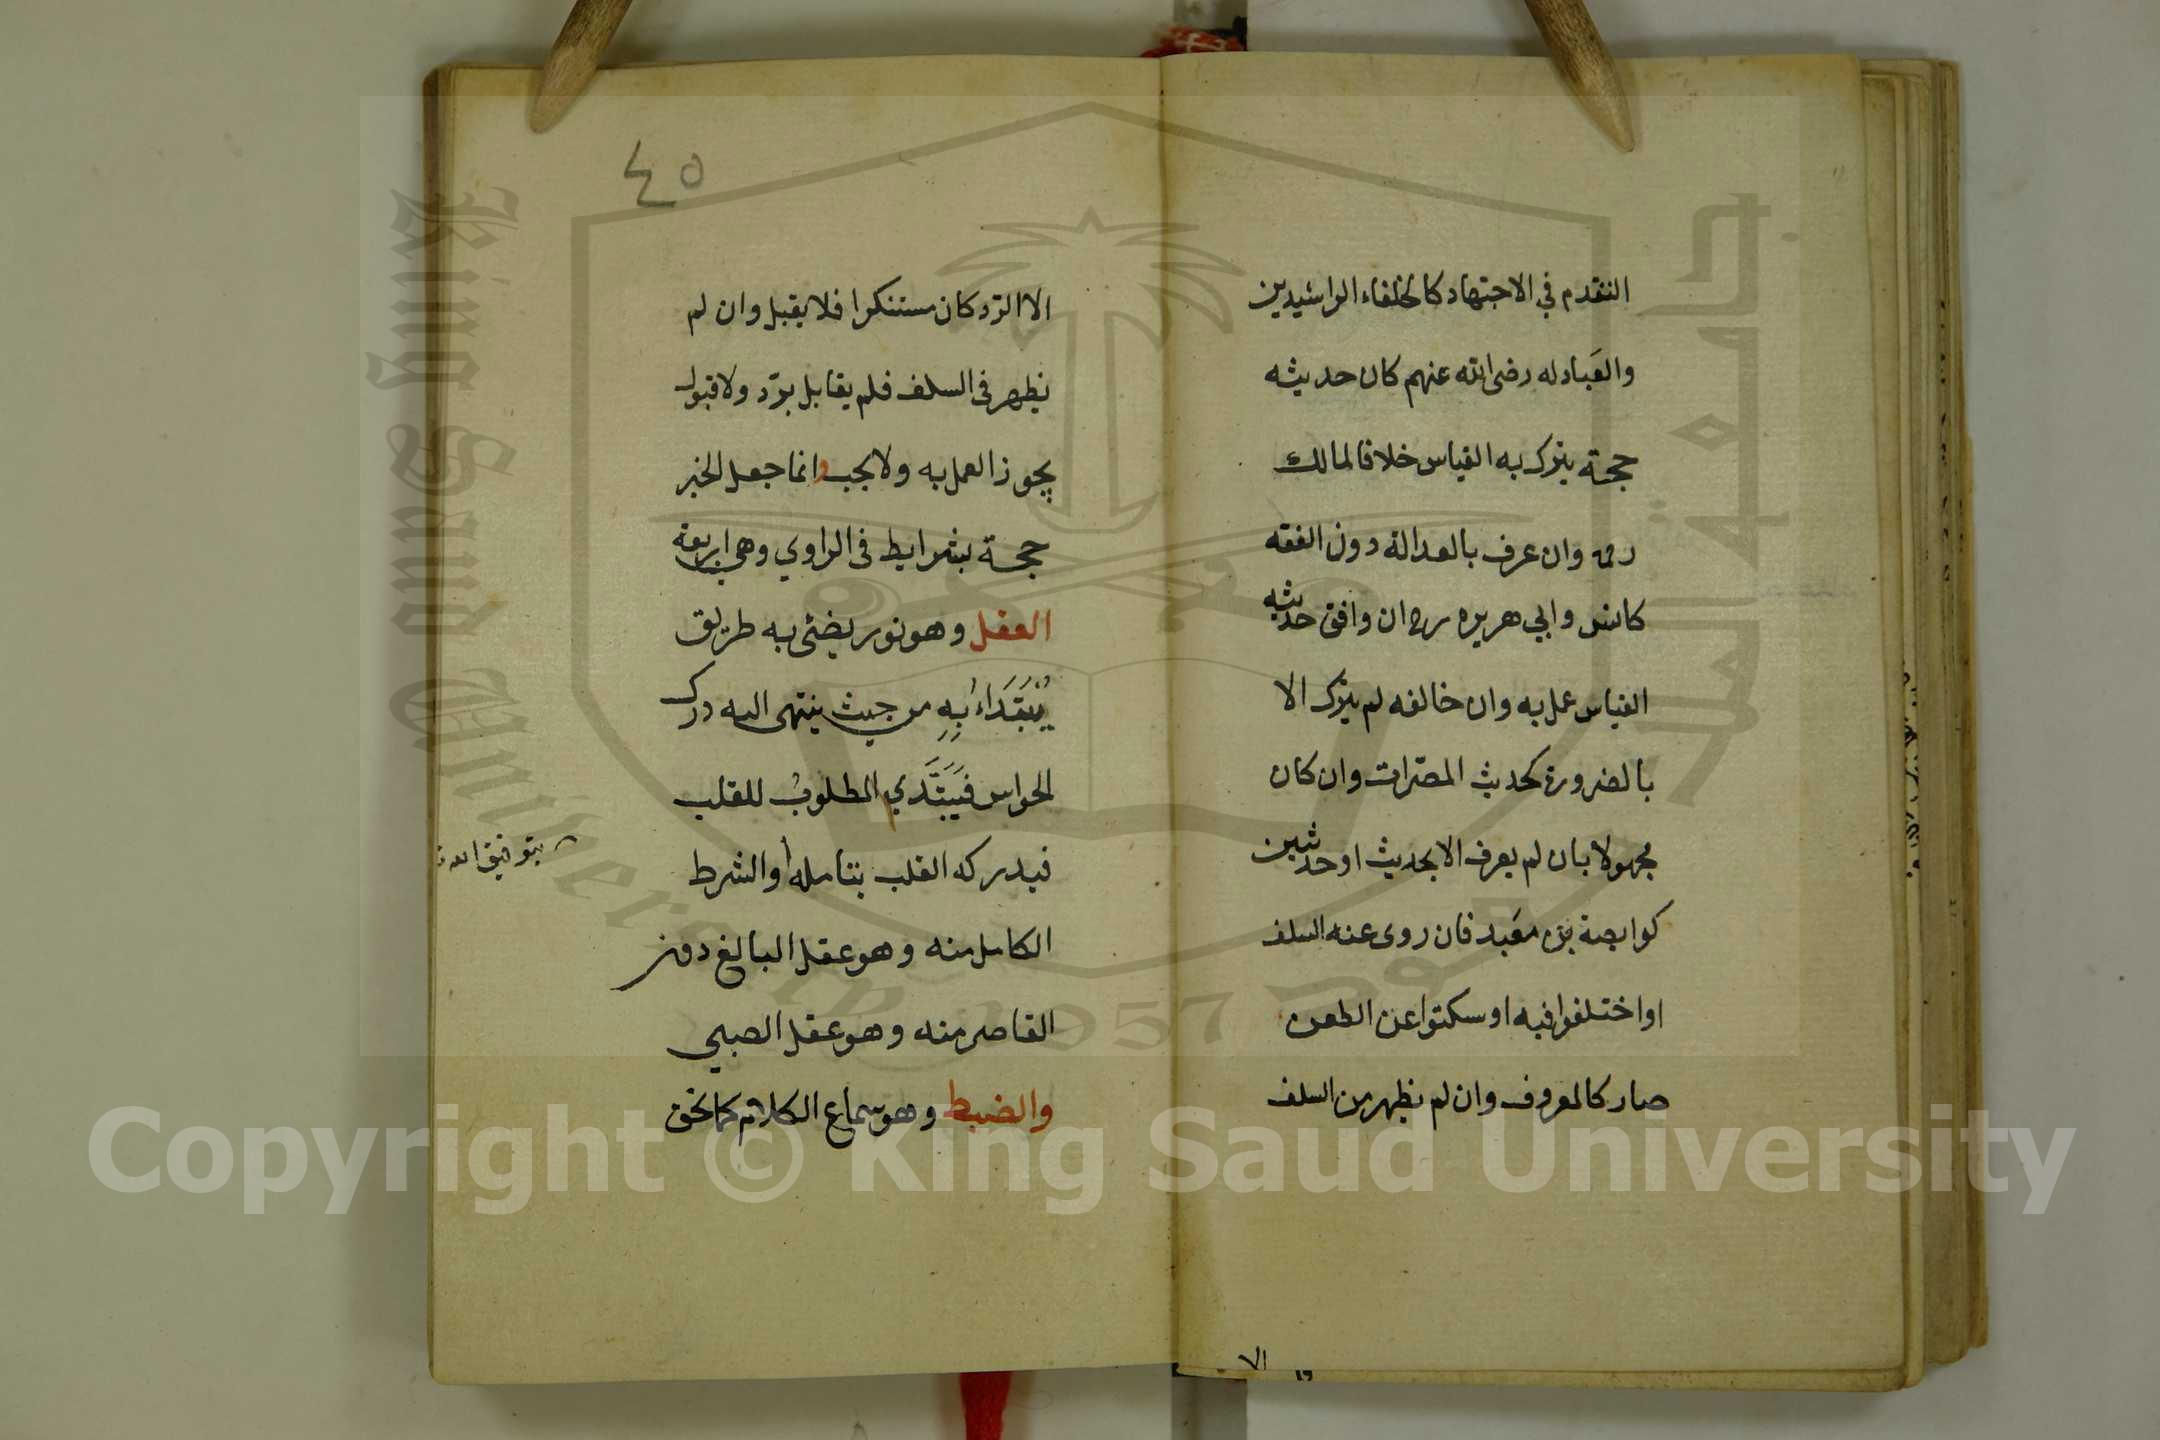 التقدم في الاجتهاد كالخلفاء الراشيدين
والعَبادله رضى الله عنهم كان حديثه
حجة يترك به القياس خلافا لمالك
رحمه وان عرف بالعدالة دون الفقه
كانس وابي هريره رح ان وافق حديثه
القياس عمل به وان خالفه لم يترك الا
بالضرورة كحديث المصّرات وان كان
مجهولا بان لم يعرف الا بحديث او حديثين
كوابصة بن معَبد فان روى عنه السلف
او اختلفوا فيه او سكتوا عن الطعن
صار كالمعروف وان لم يظهر من السلف
الا
٤٥
الا الرّد كان مستنكرا فلا يقبل وان لم
يظهر فى السلف فلم يقابل بردّ ولا قبول
يجوز العمل به ولا يجب وانما جعل الخبر
حجة بشرايط فى الراوي وهي اربعة
العقل وهو نور يضئى به طريق
يُبْتَدَاءُ بِهِ من حيث ينتهى اليه درك
الحواس فَيَبَتَدي المطلوبُ للقلب
فيدركه القلب بتامله والشرط
بتوفيق الله ت
الكامل منه وهو عقل البالغ دون
القاصر منه وهو عقل الصبي
والضبط وهو سماع الكلام كما يحق
King Saud University
1957
جامعة الملك سعود
Copyright © King Saud University